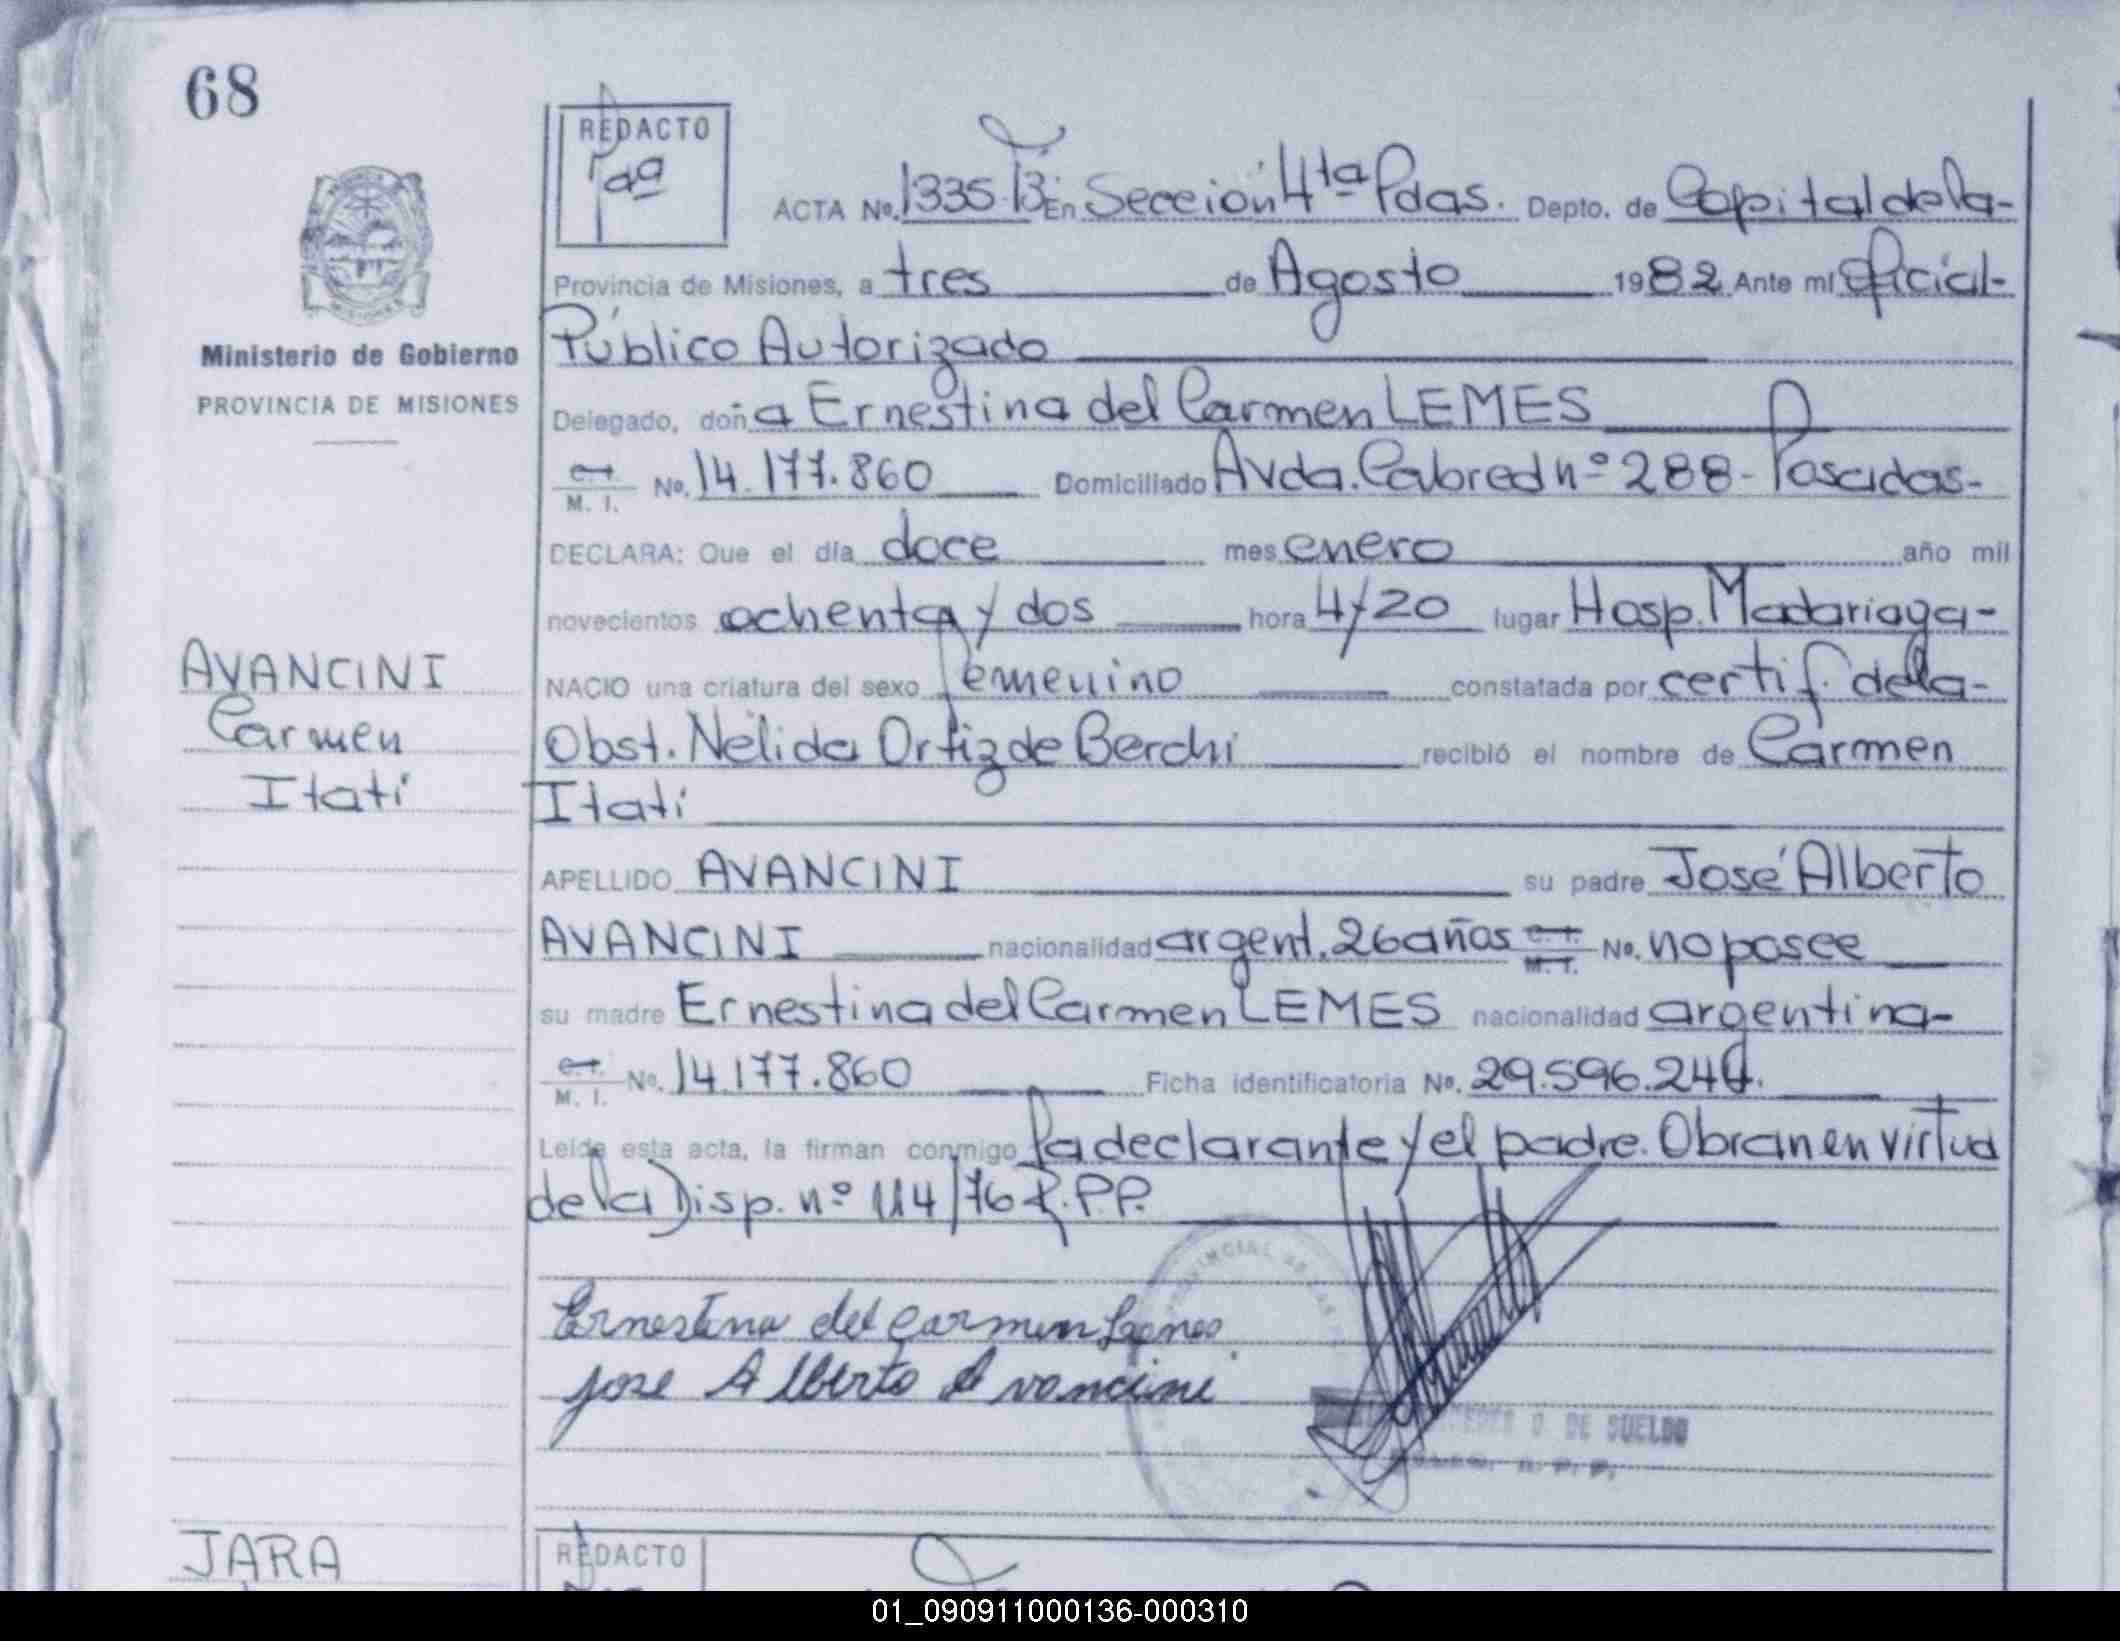 68
REDACTO
ACTA No. 1335 T3 En Sección 4ta Pdas. Depto. de Capital de la-
Provincia de Misiones, a tres de Agosto 1982 Ante mí Oficial-
Público Autorizado
Ministerio de Gobierno
PROVINCIA DE MISIONES
Delegado, doña Ernestina del Carmen LEMES
C. I. M. I. No. 14.177.860 Domiciliado Avda. Cabred nº 288 - Posadas-
DECLARA: Que el día doce mes enero año mil
novecientos ochenta y dos hora 4/20 lugar Hosp. Madariaga-
AVANCINI
Carmen
Itatí
NACIO una criatura del sexo femenino constatada por certif. de la-
Obst. Nélida Ortiz de Berchi recibió el nombre de Carmen
Itatí
APELLIDO AVANCINI su padre José Alberto
AVANCINI nacionalidad argent. 26 años C. I. M. I. No. no posee
su madre Ernestina del Carmen LEMES nacionalidad argentina-
C. I. M. I. No. 14.177.860 Ficha identificatoria No. 29.596.24
Leída esta acta, la firman conmigo la declarante y el padre. Obran en virtud
de la Disp. nº 114/76 R.P.P.
Ernestina del Carmen Lemes
jose Alberto Avancini
O. DE SUELDO
R. P. P.
JARA
REDACTO
01_090911000136-000310